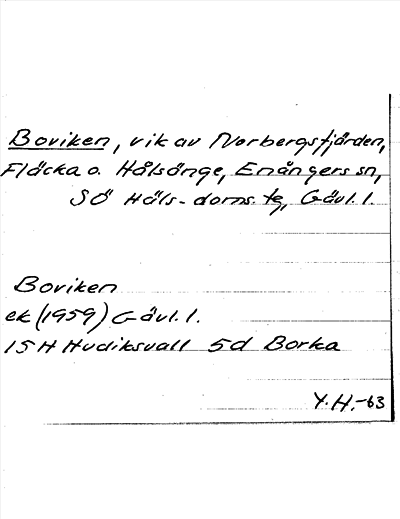 Boviken, vik av Norbergsfjärden,
Fläcka o. Hålsänge, Enångers sn,
SÖ Häls. doms. tg, Gävl. l.
Boviken
ek (1959) Gävl. l.
15H Hudiksvall 5d Borka
Y.H.-63